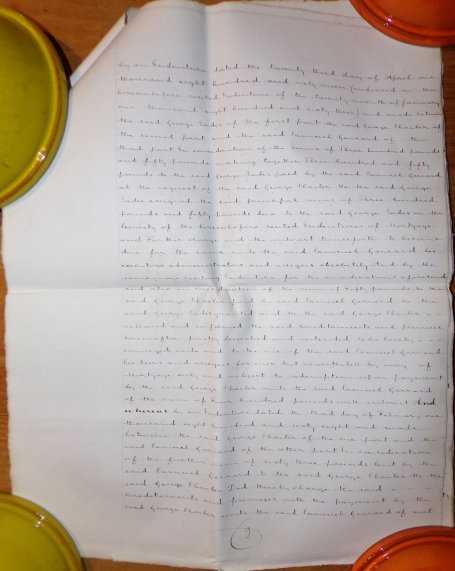 by an Indenture dated the twenty third day of April one
thousand eight hundred and sixty seven (endorsed on the
hereinbefore recited Indenture of the twenty seventh of January
one thousand eight hundred and sixty three) and made between
the said George Eades of the first part the said George Charles of
the second part and the said Samuel Garrard of the
third part In consideration of the sums of Three hundred pounds
and fifty pounds making together Three hundred and fifty
pounds to the said George Eades paid by the said Samuel Garrard
at the request of the said George Charles He the said George
Eades assigned the said principal sums of Three hundred
pounds and fifty pounds due to the said George Eades on the
security of the hereinbefore recited Indentures of Mortgage
and Further charge and the interest thenceforth to become
due for the same unto the said Samuel Garrard his
executors administrators and assigns absolutely And by the
Indenture for the consideration aforesaid
and also in consideration of the sum of fifty pounds to the
said George Charles paid by the said Samuel Garrard He the
said George Eades and He the said George Charles
released and confirmed the said hereditaments and premises
hereinafter firstly described and intended to be hereby
conveyed unto and to the use of the said Samuel Garrard
his heirs and assigns for ever but nevertheless by way of
Mortgage only and subject to redemption upon payment
by the said George Charles unto the said Samuel Garrard
of the sum of four hundred pounds with interest And
whereas by an Indenture dated the third day of February one
thousand eight hundred and sixty eight and made
between the said George Charles of the one part and the
said Samuel Garrard of the other part In consideration
of the further sum of sixty three pounds lent by the
said Samuel Garrard to the said George Charles He the
said George Charles Did thereby charge the said
hereditaments and premises with the payment by the
said George Charles unto the said Samuel Garrard of
2